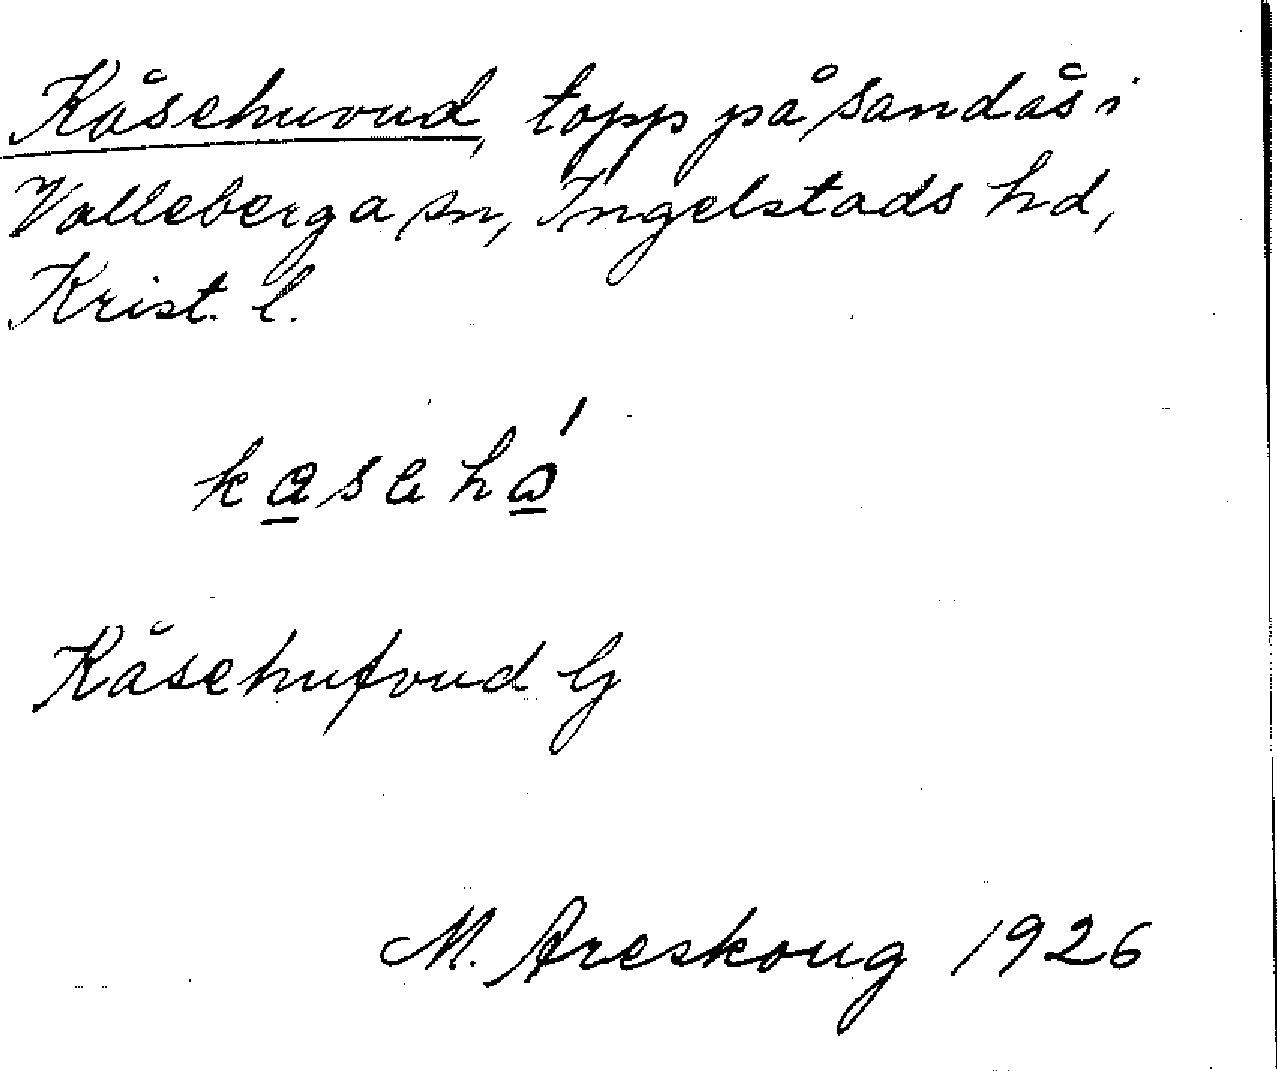 Kåsehuvud, topp på sandås i
Valleberga sn, Ingelstads hd,
Krist. l.
Kåsehufvud G
M. Areskoug 1926